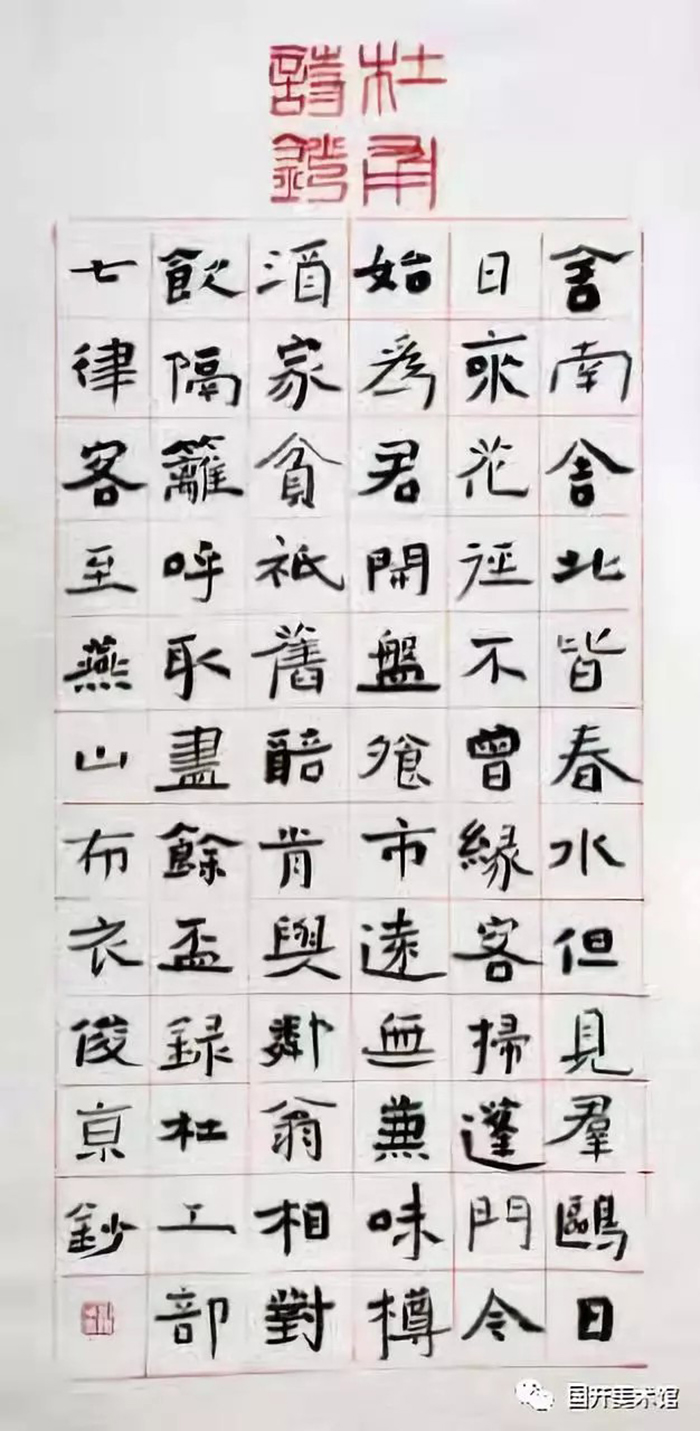 杜甫
詩鈔
舍南舍北皆春水但見羣鷗日
日來花徑不曾緣客掃蓬門今
始爲君開盤飧市遠無兼味樽
酒家貧祇舊醅肯與鄰翁相對
飲隔籬呼取盡餘盃録杜工部
七律客至燕山布衣俊亰鈔
国开美术馆